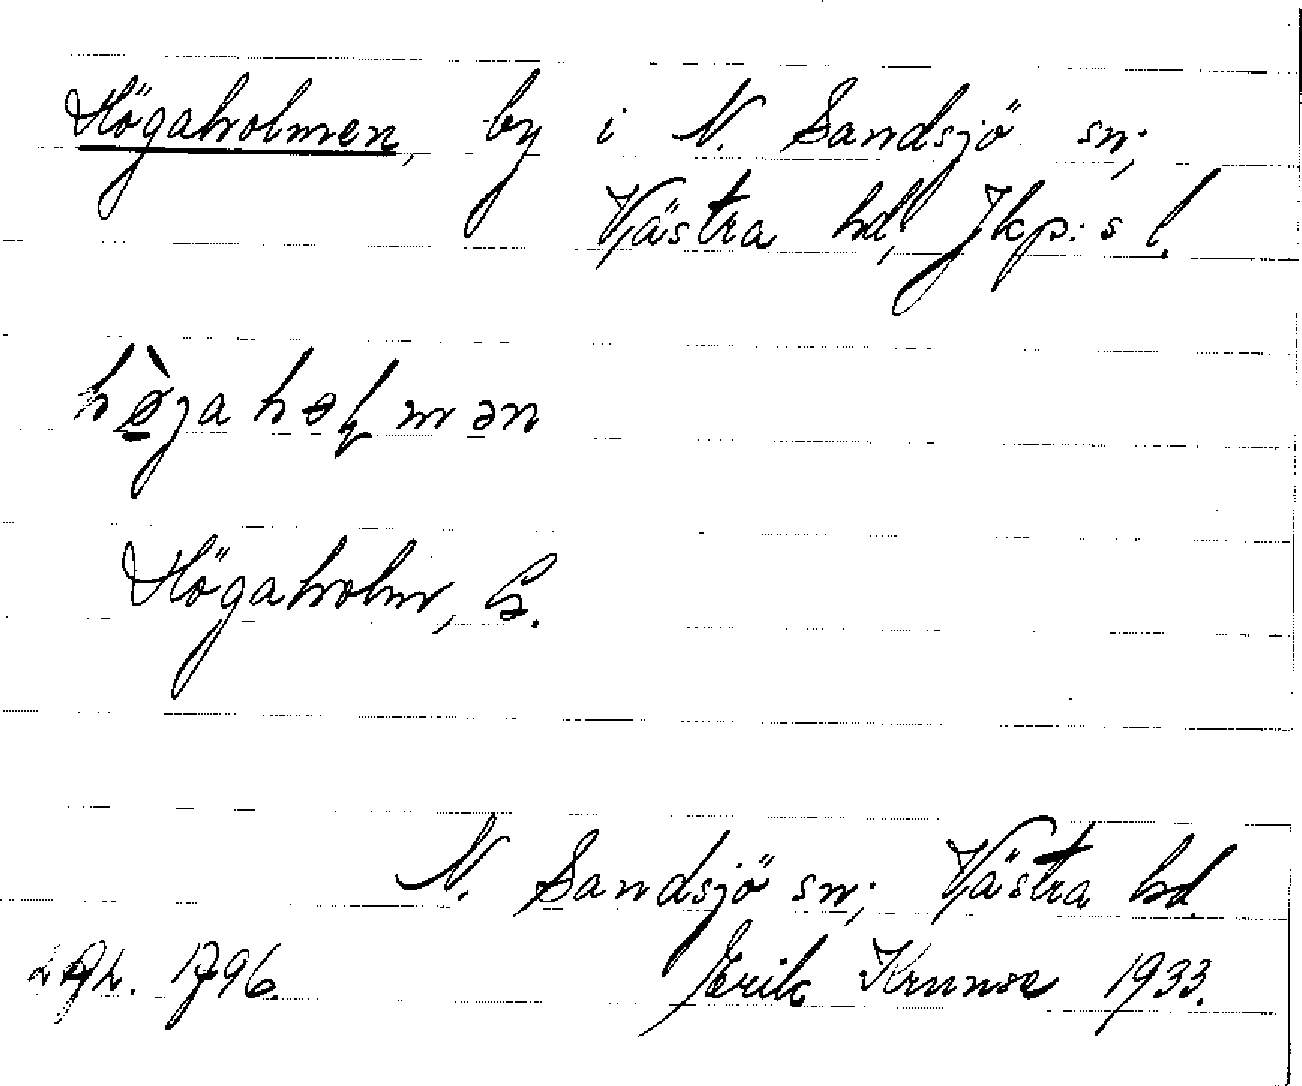 Högaholmen, by i N. Sandsjö sn;
Västra hd, Jkp:s l.
hø̀gahəɭmən
Högaholm, G.
N. Sandsjö sn; Västra hd.
1796. Erik Krunse 1933.